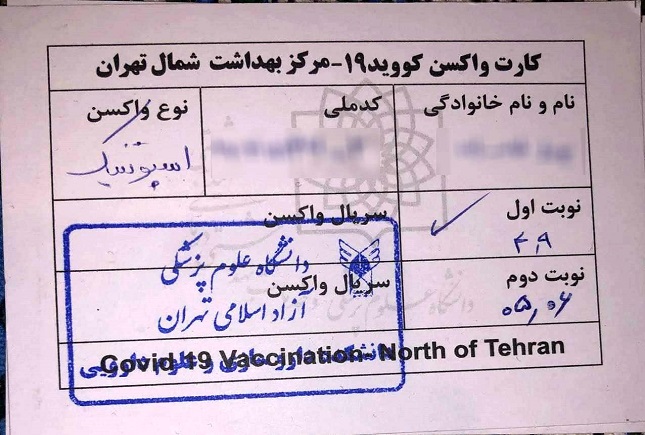 کارت واکسن کووید۱۹-مرکز بهداشت شمال تهران
نام و نام خانوادگی
کدملی
نوع واکسن
اسپوتنیک
نوبت اول
سریال واکسن
نوبت دوم
سریال واکسن
۰۵,۰۶
دانشگاه علوم پزشکی
آزاد اسلامی تهران
Covid 19 Vaccination- North of Tehran